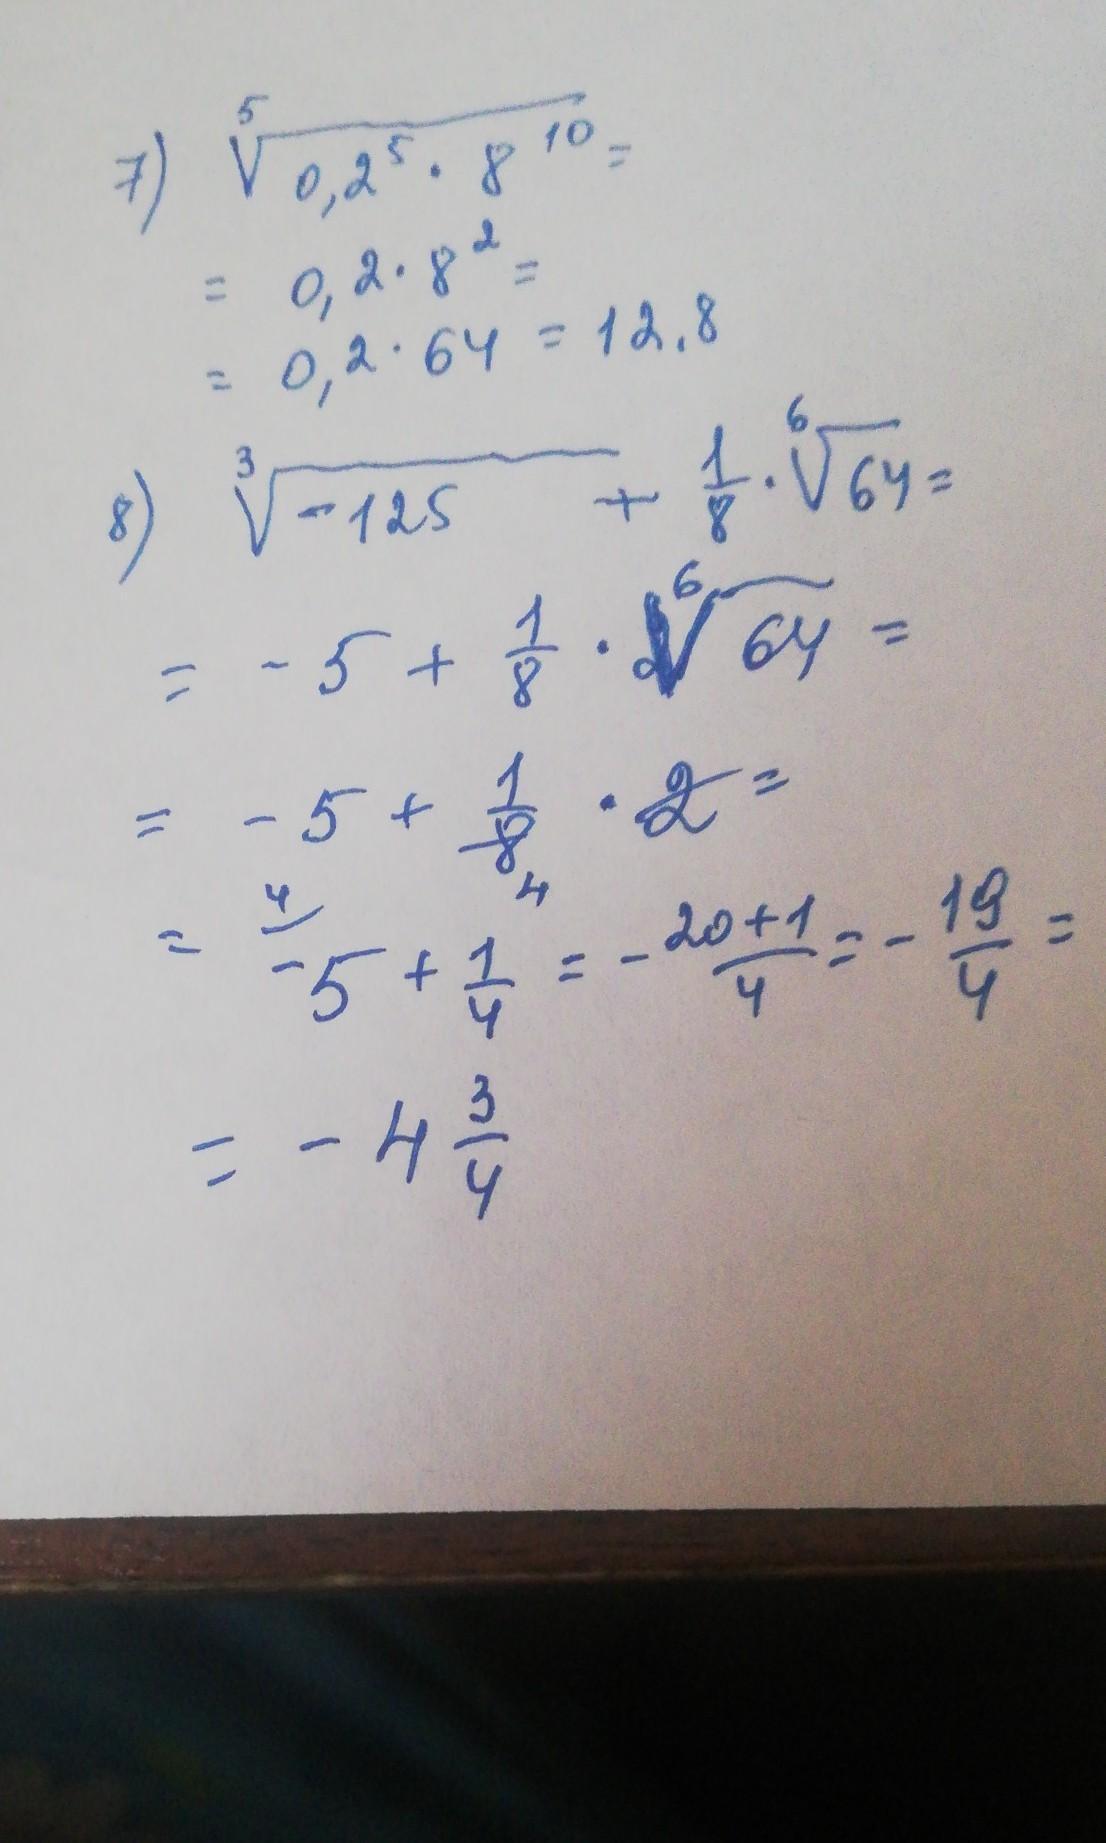 7) ⁵√(0,2⁵ · 8¹⁰) =
= 0,2 · 8² =
= 0,2 · 64 = 12.8
8) ³√(-125) + 1/8 · ⁶√64 =
= - 5 + 1/8 · ⁶√64 =
= - 5 + 1/8 · 2 =
4
= 4/ -5 + 1/4 = - 20+1/4 = - 19/4 =
= - 4 3/4